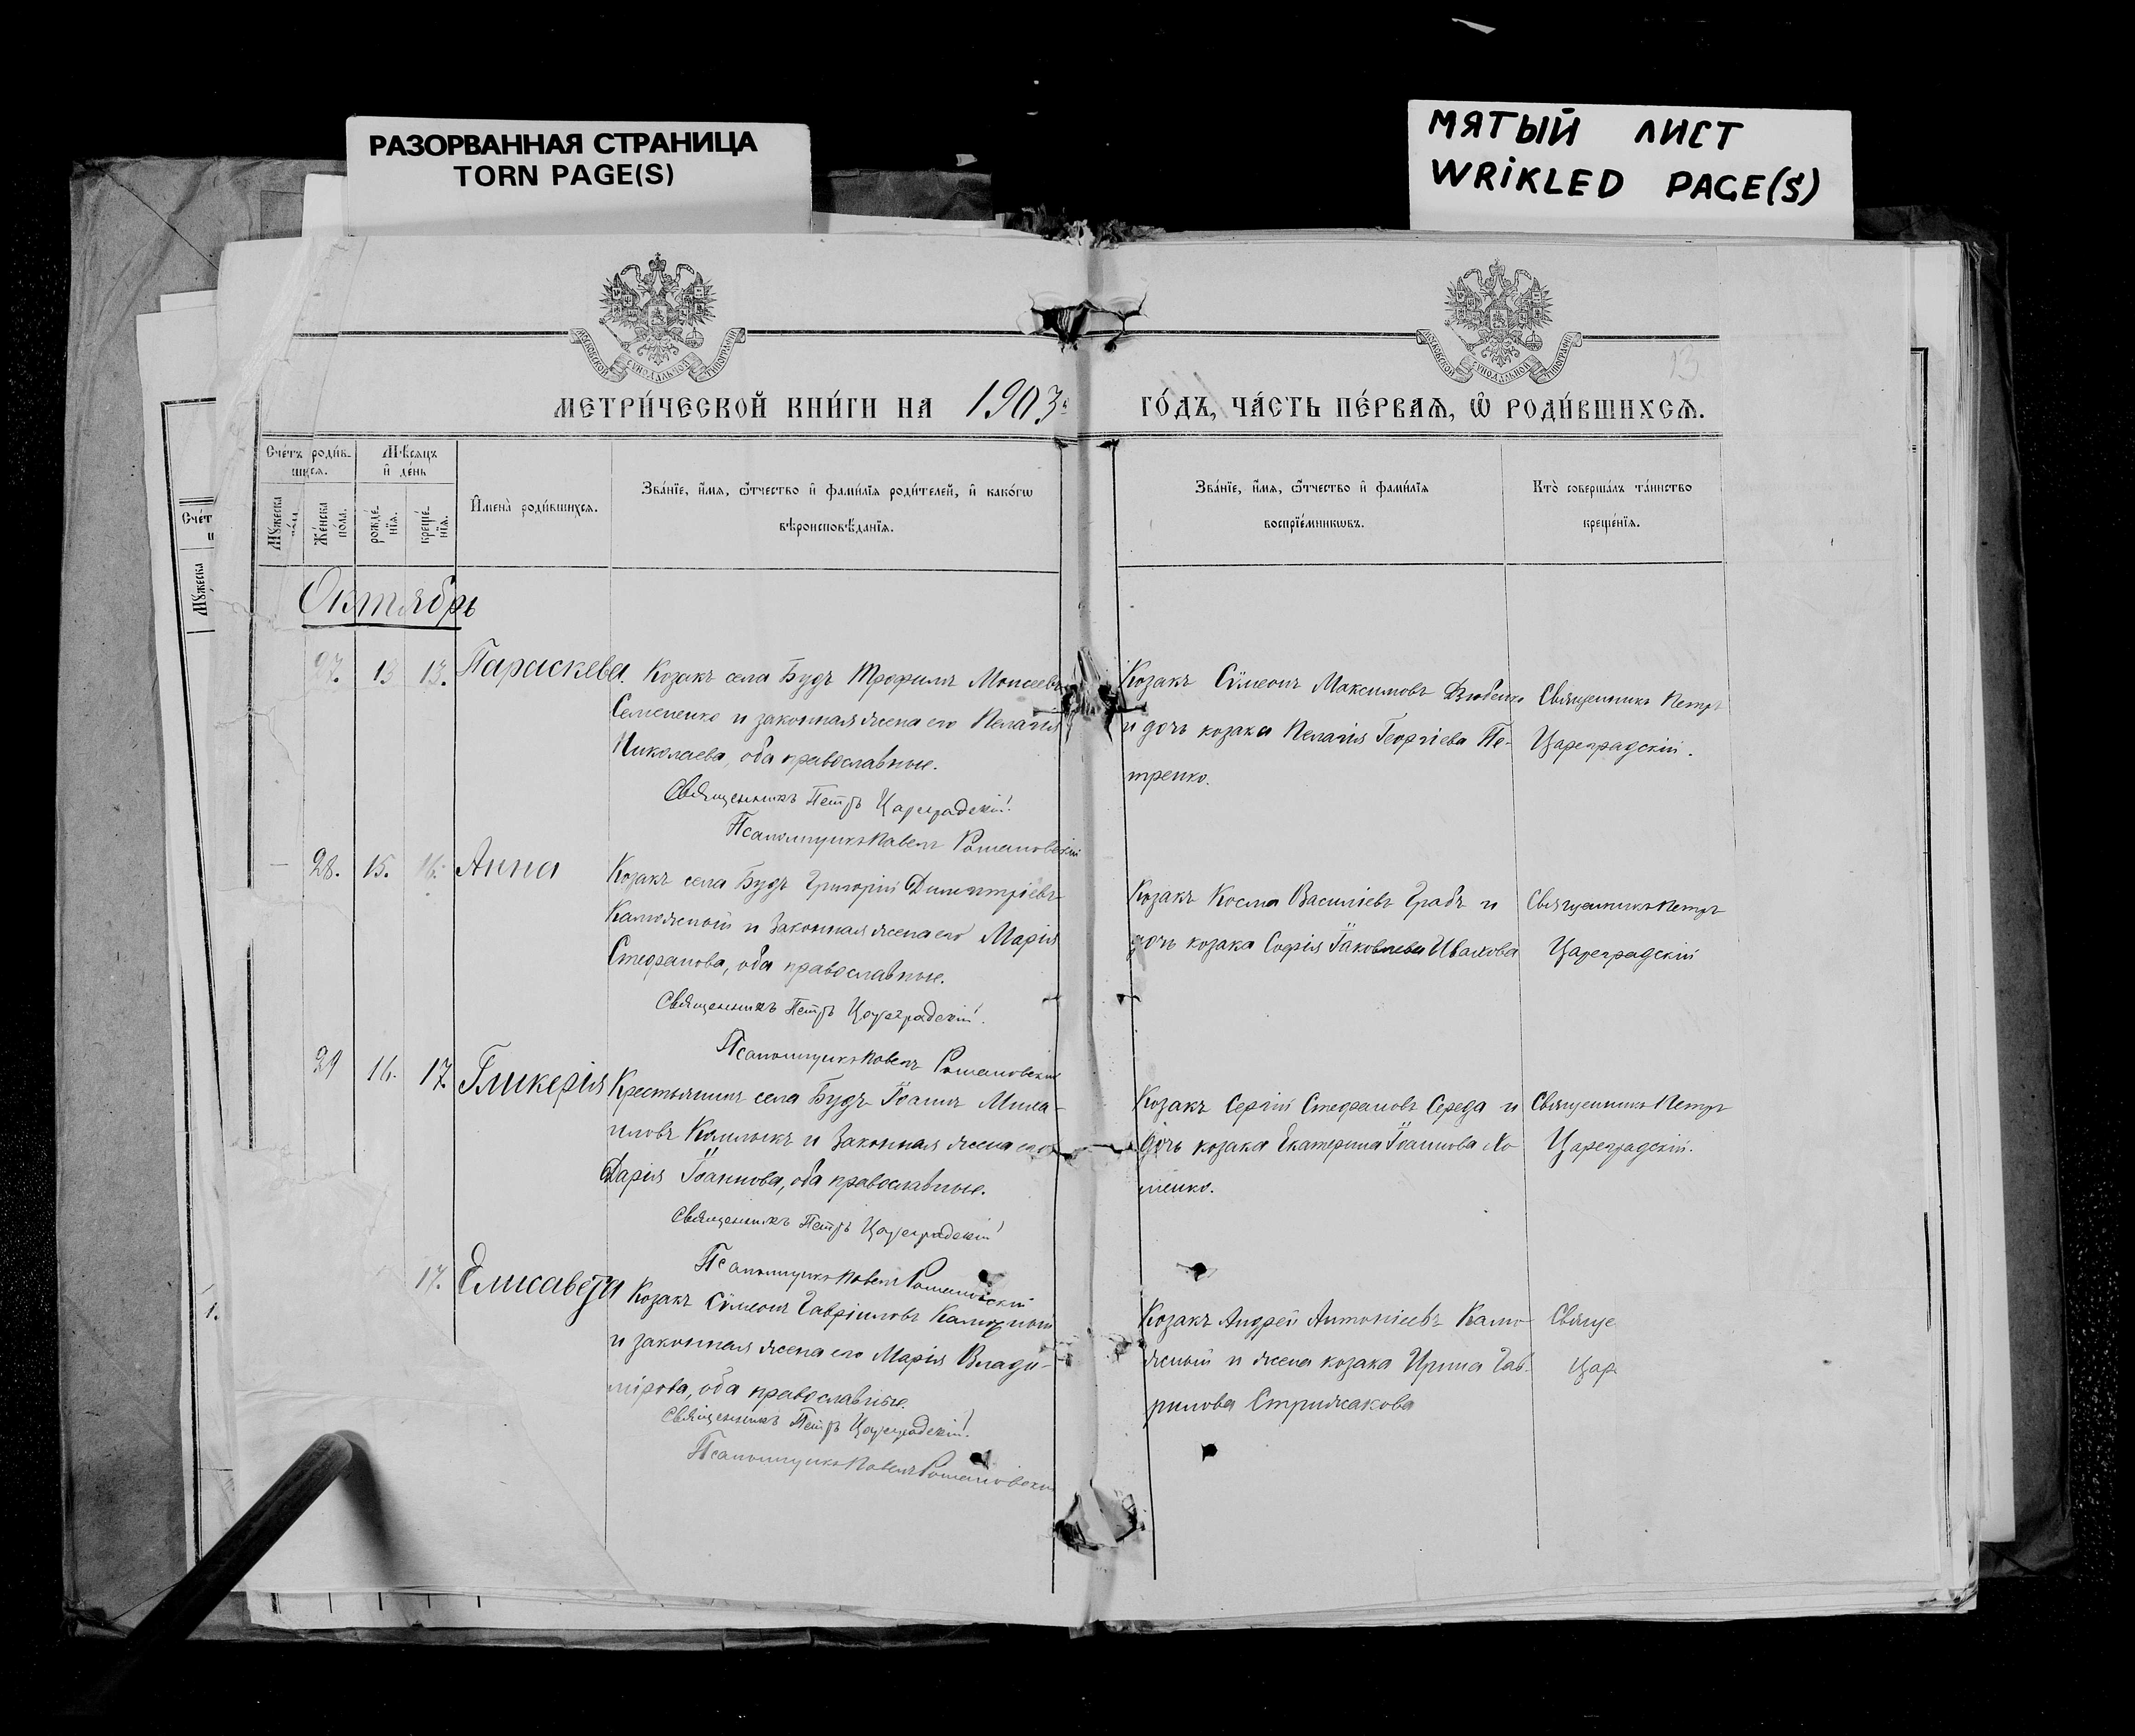 РАЗОРВАННАЯ СТРАНИЦА
TORN PAGE(S)
МЯТЫЙ ЛИСТ
WRiKLED PAGE(S)
МОСКОВСКОЙ СѴНОДАЛЬНОЙ ТИПОГРАФІИ
МОСКОВСКОЙ СѴНОДАЛЬНОЙ ТИПОГРАФІИ
13
МЕТРИ́ЧЕСКОЙ КНИ́ГИ НА 1903
ГО́ДЪ, ЧА́СТЬ ПЕ́РВАѦ, Ѡ҆ РОДИ́ВШИХСѦ.
Сче́тъ роди́в-
шихся.
Мѣ́сяцъ
и҆ де́нь
Мꙋ́жеска
по́ла.
Же́нска
пола.
рожде́-
нїя.
креще́-
нїя.
И҆мена̀ роди́вшихся.
Зва́нїе, и҆́мя, ѻ҆́тчество и҆ фами́лїя роди́телей, и҆ како́гѡ
вѣроисповѣ́данїя.
Зва́нїе, и҆́мя, ѻ҆́тчество и҆ фами́лїя
воспрїе́мникѡвъ.
Кто̀ соверша́лъ та́инство
креще́нїя.
Сче́т
Мꙋ́жеска
Октябрь
27. 13 13. Параскева.
Козакъ села Будъ Трофимъ Моисеевъ
Семененко и законная жена его Пелагія
Николаева, оба православные.
Священникъ Петръ Цареградскій.
Псаломщикъ Павелъ Романовскій
Козакъ Сѵмеонъ Максимовъ Дзюбенко
и дочь козака Пелагія Георгіева Пе-
тренко.
Священникъ Петръ
Цареградскій.
28. 15. 16. Анна
Козакъ села Будъ Григорій Димитріевъ
Каложный и законная жена его Марія
Стефанова, оба православные.
Священникъ Петръ Цареградскій.
Псаломщикъ Павелъ Романовскій
Козакъ Косма Василіевъ Грабъ и
дочь козака Софія Іаковлева Ивахова
Священникъ Петръ
Цареградскій
16. 17. Гликерія
Крестьянинъ села Будъ Іоаннъ Миха-
иловъ Калмыкъ и законная жена его
Дарія Іоаннова, оба православные.
Священникъ Петръ Цареградскій
Псаломщикъ Павелъ Романовскій
Козакъ Сергій Стефановъ Середа и
дочь козака Екатерина Іоаннова Хо
менко.
Священникъ Петръ
Цареградскій.
17. Елисавета
Козакъ Сѵмеонъ Гавріиловъ Каложный
и законная жена его Марія Влади-
мірова, оба православные.
Священникъ Петръ Цареградскій.
Псаломщикъ Павелъ Романовскій
Козакъ Андрей Антоніевъ Кало
жный и жена козака Ирина Гав-
рилова Стрижакова
Свяще
Цар
1.